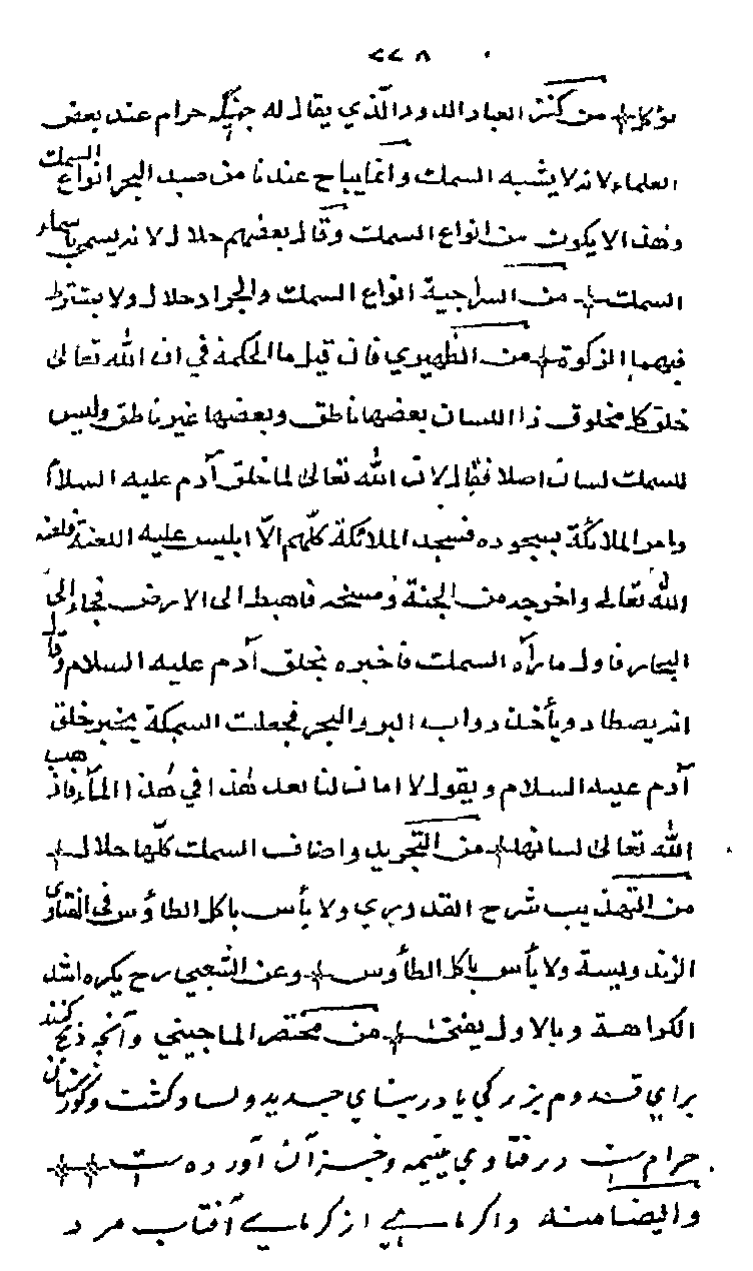 ٢٢٨
يؤكل من كنز العباد الدود الذي يقال له جهنكه حرام عند بعض
العلماء لانه لا يشبه السمك وانما يباح عندنا من صيد البحر انواع السمك
وهذا لا يكون من انواع السمك وقال بعضهم حلال لانه يسمى باسماء
السمك من السراجية انواع السمك والجراد حلال ولا يشترط
فيهما الذكوة من الظهيري فان قيل ما الحكمة في ان الله تعالى
خلق كل مخلوق ذا اللسان بعضها ناطق وبعضها غير ناطق وليس
للسمك لسان اصلا فقال لان الله تعالى لما خلق آدم عليه السلام
وامر الملائكة بسجوده فسجد الملائكة كلّهم الّا ابليس عليه اللعنة فلعنه
الله تعالى واخرجه من الجنة ومسخه فاهبط الى الارض فجاء إلى
البحار فاول ما رآه السمك فاخبره بخلق آدم عليه السلام وقال
انه يصطاد ويأخذ دواب البر والبحر فجعلت السمكة يخبر خلق
آدم عليه السلام ويقول لا امان لنا بعد هذا في هذا المآء فاذهب
الله تعالى لسانها من التجريد واضاف السمك كلّها حلال
من التهذيب شرح القدوري ولا بأس باكل الطاؤس فى الفتاوى
الزندويسة ولا بأس باكل الطاؤس وعن الشعبي رح يكره اشد
الكراهة وبالاول يفتى من مختصر الماجيني وآنچه ذبح كنند
براي قدوم بزركي يا در بناي جديد و كشت وكورستان
حرام ست در فتاوي يتيمه وجز آن آورده ست
وايضا منه واكر ماهي از كرماي آفتاب مرد